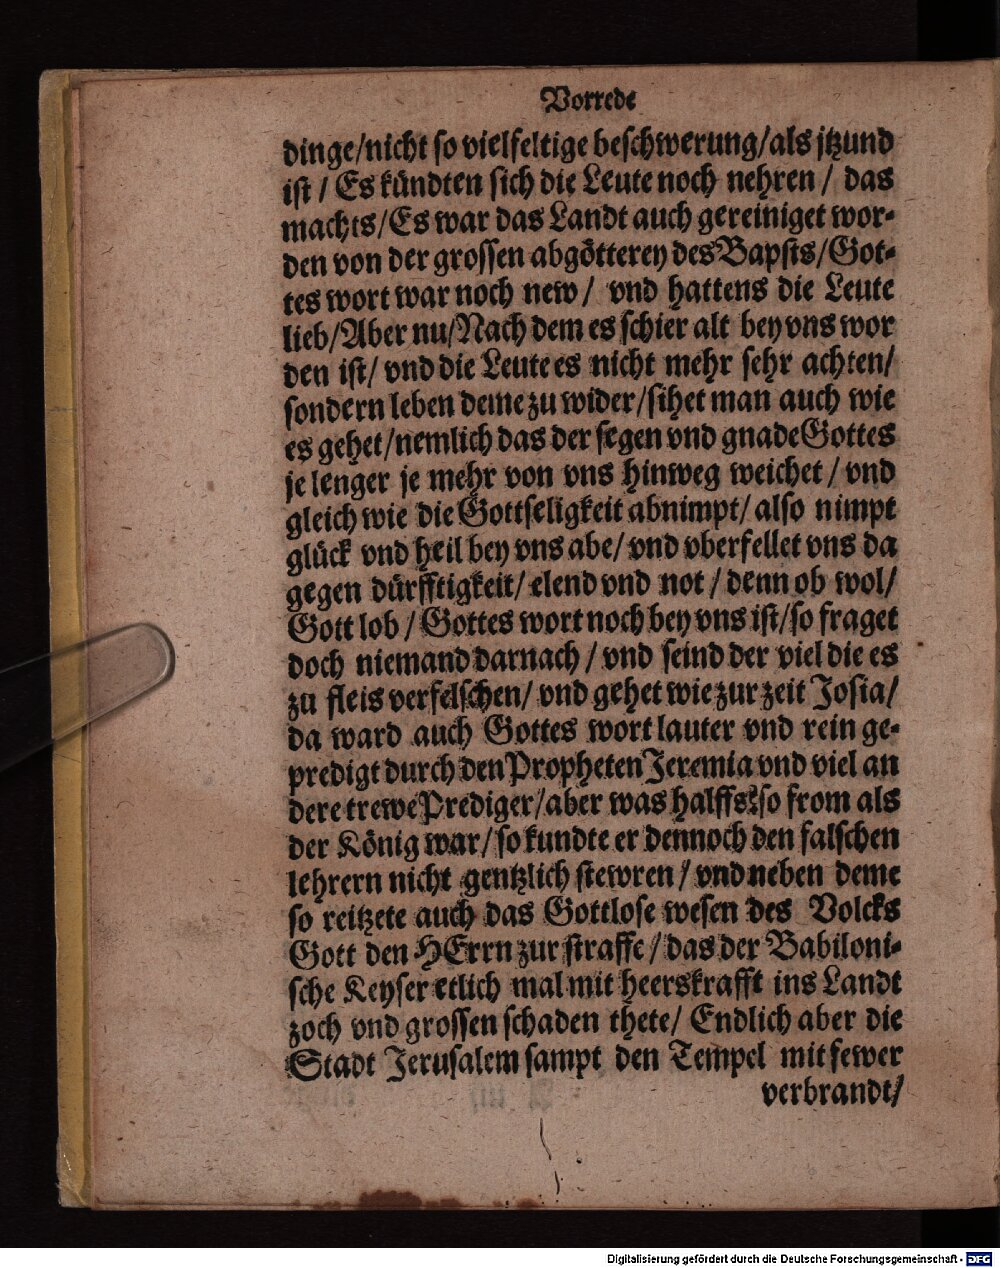 Vorrede
dinge/nicht so vielfeltige beschwerung/als jtzund
ist / Es kündten sich die Leute noch nehren / das
machts/Es war das Landt auch gereiniget wor-
den von der grossen abgötterey des Bapsts/Got-
tes wort war noch new / vnd hattens die Leute
lieb/Aber nu/Nach dem es schier alt bey vns wor
den ist/ vnd die Leute es nicht mehr sehr achten/
sondern leben deme zu wider/sihet man auch wie
es gehet/nemlich das der segen vnd gnade Gottes
je lenger je mehr von vns hinweg weichet / vnd
gleich wie die Gottseligkeit abnimpt/ also nimpt
glück vnd heil bey vns abe/ vnd vberfellet vns da
gegen dürfftigkeit/ elend vnd not / denn ob wol/
Gott lob / Gottes wort noch bey vns ist/so fraget
doch niemand darnach / vnd seind der viel die es
zu fleis verfelschen/ vnd gehet wie zur zeit Josia/
da ward auch Gottes wort lauter vnd rein ge-
predigt durch den Propheten Jeremia vnd viel an
dere trewe Prediger/aber was halffs? so from als
der König war/ so kundte er dennoch den falschen
lehrern nicht gentzlich stewren / vnd neben deme
so reitzete auch das Gottlose wesen des Volcks
Gott den HErrn zur straffe / das der Babiloni-
sche Keyser etlich mal mit heerskrafft ins Landt
zoch vnd grossen schaden thete/ Endlich aber die
Stadt Jerusalem sampt den Tempel mit fewer
verbrandt/
Digitalisierung gefördert durch die Deutsche Forschungsgemeinschaft - DFG